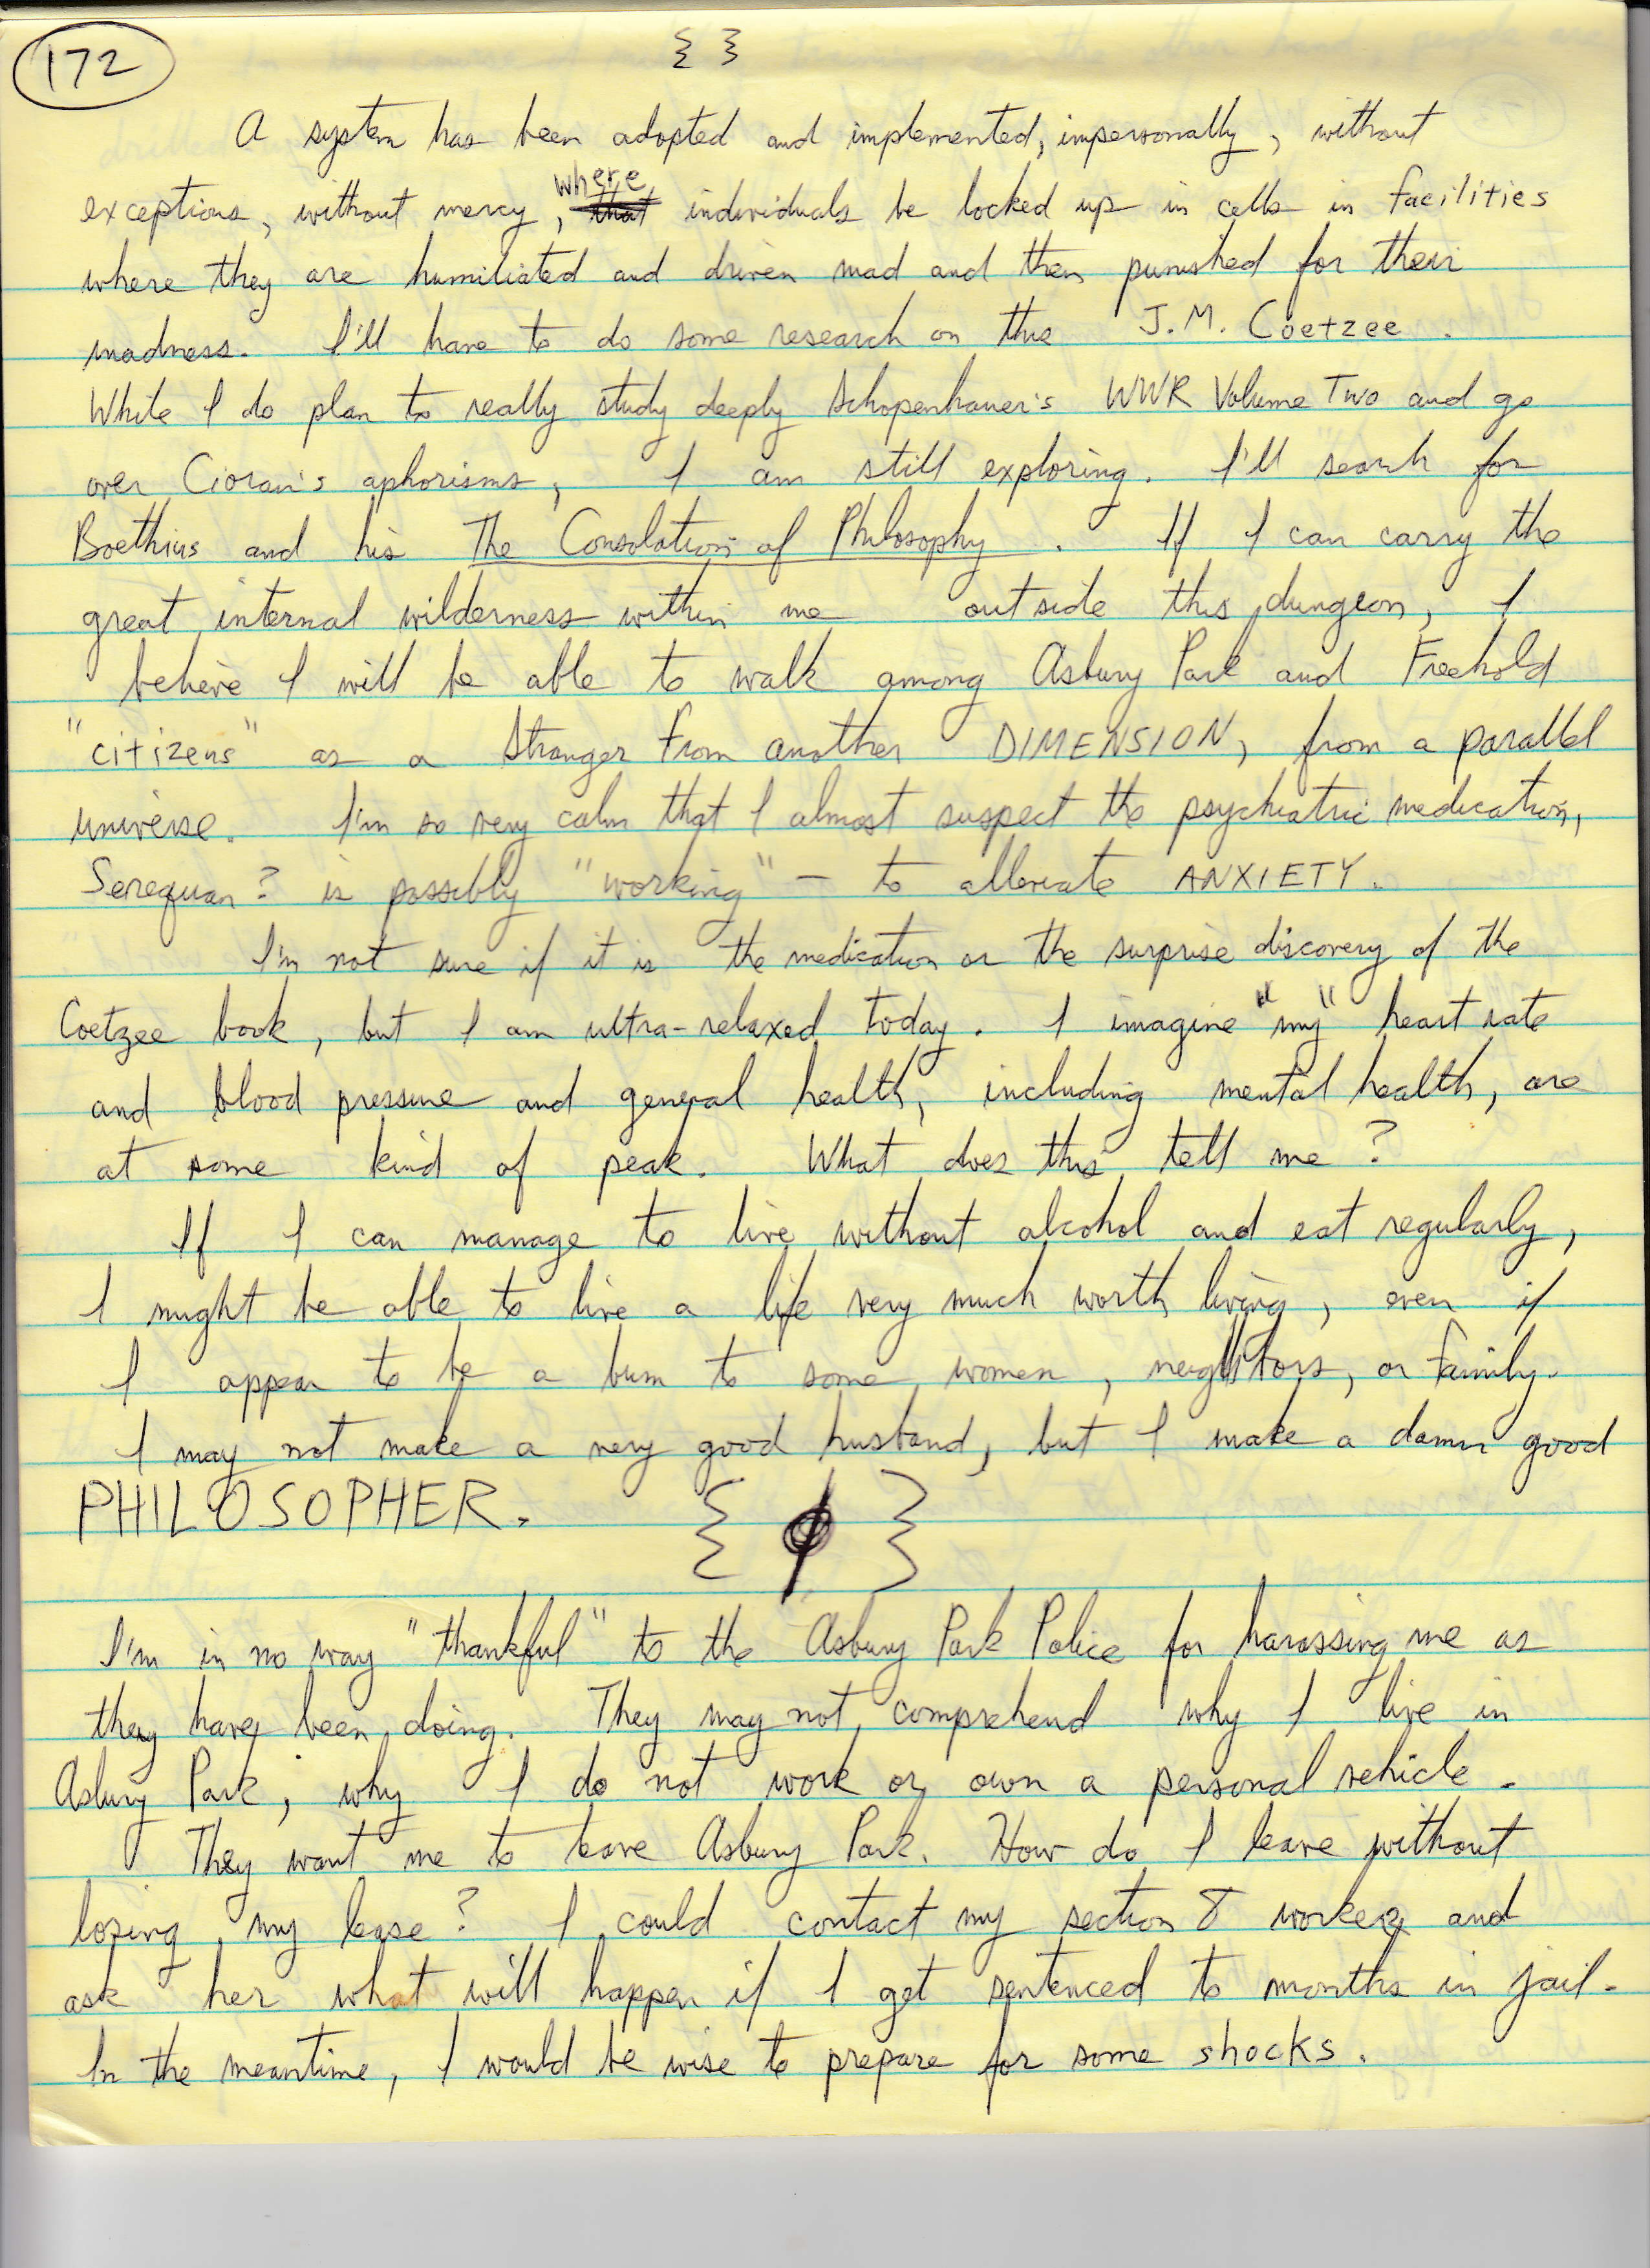 172
{ }
A system has been adopted and implemented, impersonally, without
exceptions, without mercy, where that individuals be locked up in cells in facilities
where they are humiliated and driven mad and then punished for their
madness. I'll have to do some research on this J.M. Coetzee.
While I do plan to really study deeply Schopenhauer's WWR Volume Two and go
over Cioran's aphorisms, I am still exploring. I'll search for
Boethius and his The Consolation of Philosophy. If I can carry the
great internal wilderness within me outside this dungeon, I
believe I will be able to walk among Asbury Park and Freehold
"citizens" as a stranger from another DIMENSION, from a parallel
universe. I'm so very calm that I almost suspect the psychiatric medication,
Serequan? is possibly "working" – to alleviate ANXIETY.
I'm not sure if it is the medication or the surprise discovery of the
Coetzee book, but I am ultra-relaxed today. I imagine "my" heart rate
and blood pressure and general health, including mental health, are
at some kind of peak. What does this tell me?
If I can manage to live without alcohol and eat regularly,
I might be able to live a life very much worth living, even if
I appear to be a bum to some women, neighbors, or family.
I may not make a very good husband, but I make a damn good
PHILOSOPHER.
{ ϕ }
I'm in no way "thankful" to the Asbury Park Police for harassing me as
they have been doing. They may not comprehend why I live in
Asbury Park, why I do not work or own a personal vehicle.
They want me to leave Asbury Park. How do I leave without
losing my lease? I could contact my section 8 worker and
ask her what will happen if I get sentenced to months in jail.
In the meantime, I would be wise to prepare for some shocks.